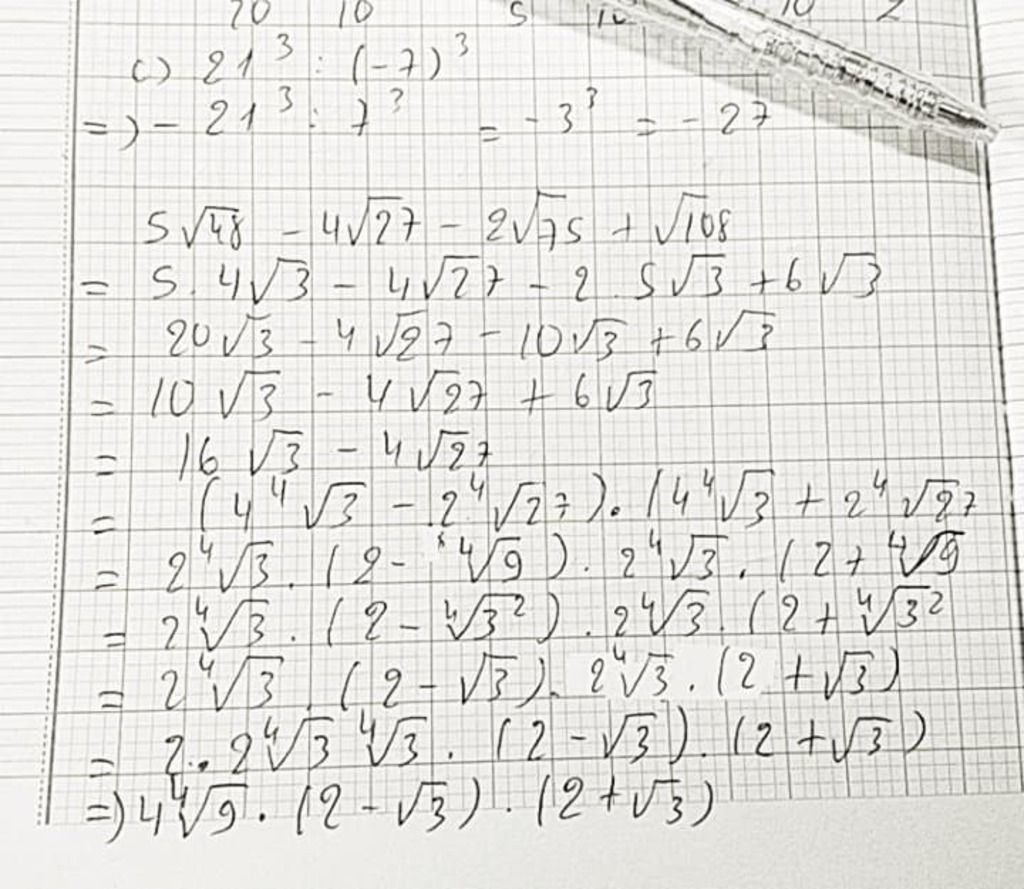 20 10 5 10 10 2
c) 21³ : (-7)³
=) - 21³ : 7³ = -3³ = -27
5√48 - 4√27 - 2√75 + √108
= 5.4√3 - 4√27 - 2.5√3 + 6√3
= 20√3 - 4√27 - 10√3 + 6√3
= 10√3 - 4√27 + 6√3
= 16√3 - 4√27
= (4⁴√3 - 2⁴√27).(4⁴√3 + 2⁴√27
= 2⁴√3.(2 - ⁴√9).2⁴√3.(2 + ⁴√9
= 2⁴√3.(2 - ⁴√3²).2⁴√3.(2 + ⁴√3²
= 2⁴√3 (2 - √3).2⁴√3.(2 + √3)
= 2.2⁴√3 ⁴√3.(2 - √3).(2 + √3)
=) 4⁴√9.(2 - √3).(2 + √3)